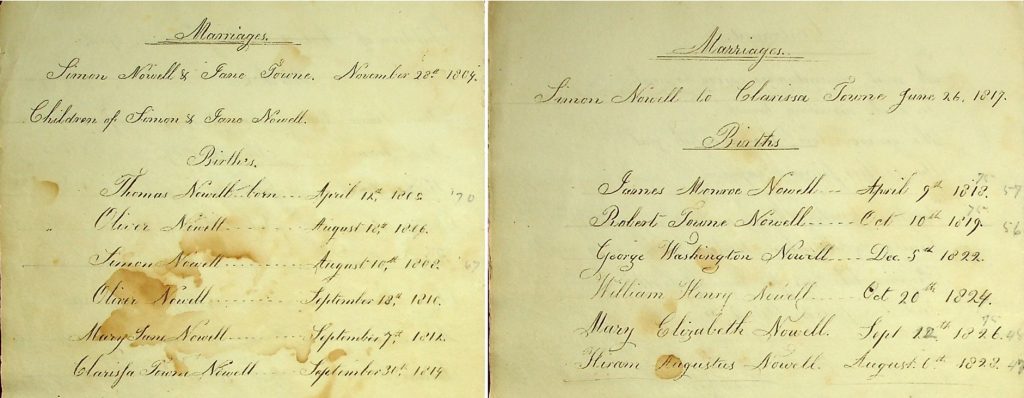 Marriages.
Simon Nowell & Jane Towne. November 28th 1804.
Children of Simon & Jane Nowell.
Births.
Thomas Nowell born April 1805 '70
Oliver Nowell August 18th, 1806.
Simon Nowell August 10th, 1808. 67
Oliver Nowell September 18th 1810.
Mary Jane Nowell September 7th, 1812.
Clarissa Town Nowell September 30th 1814
Marriages.
Simon Nowell to Clarissa Towne June 26, 1817.
Births
James Monroe Nowell April 9th 1818. 75 57
Robert Towne Nowell Oct 10th 1819. 75 56
George Washington Nowell Dec 5th 1822.
William Henry Nowell Oct 20th 1824.
Mary Elizabeth Nowell. Sept 22th 1826. 75
Hiram Augustus Nowell. August 6th 1828.